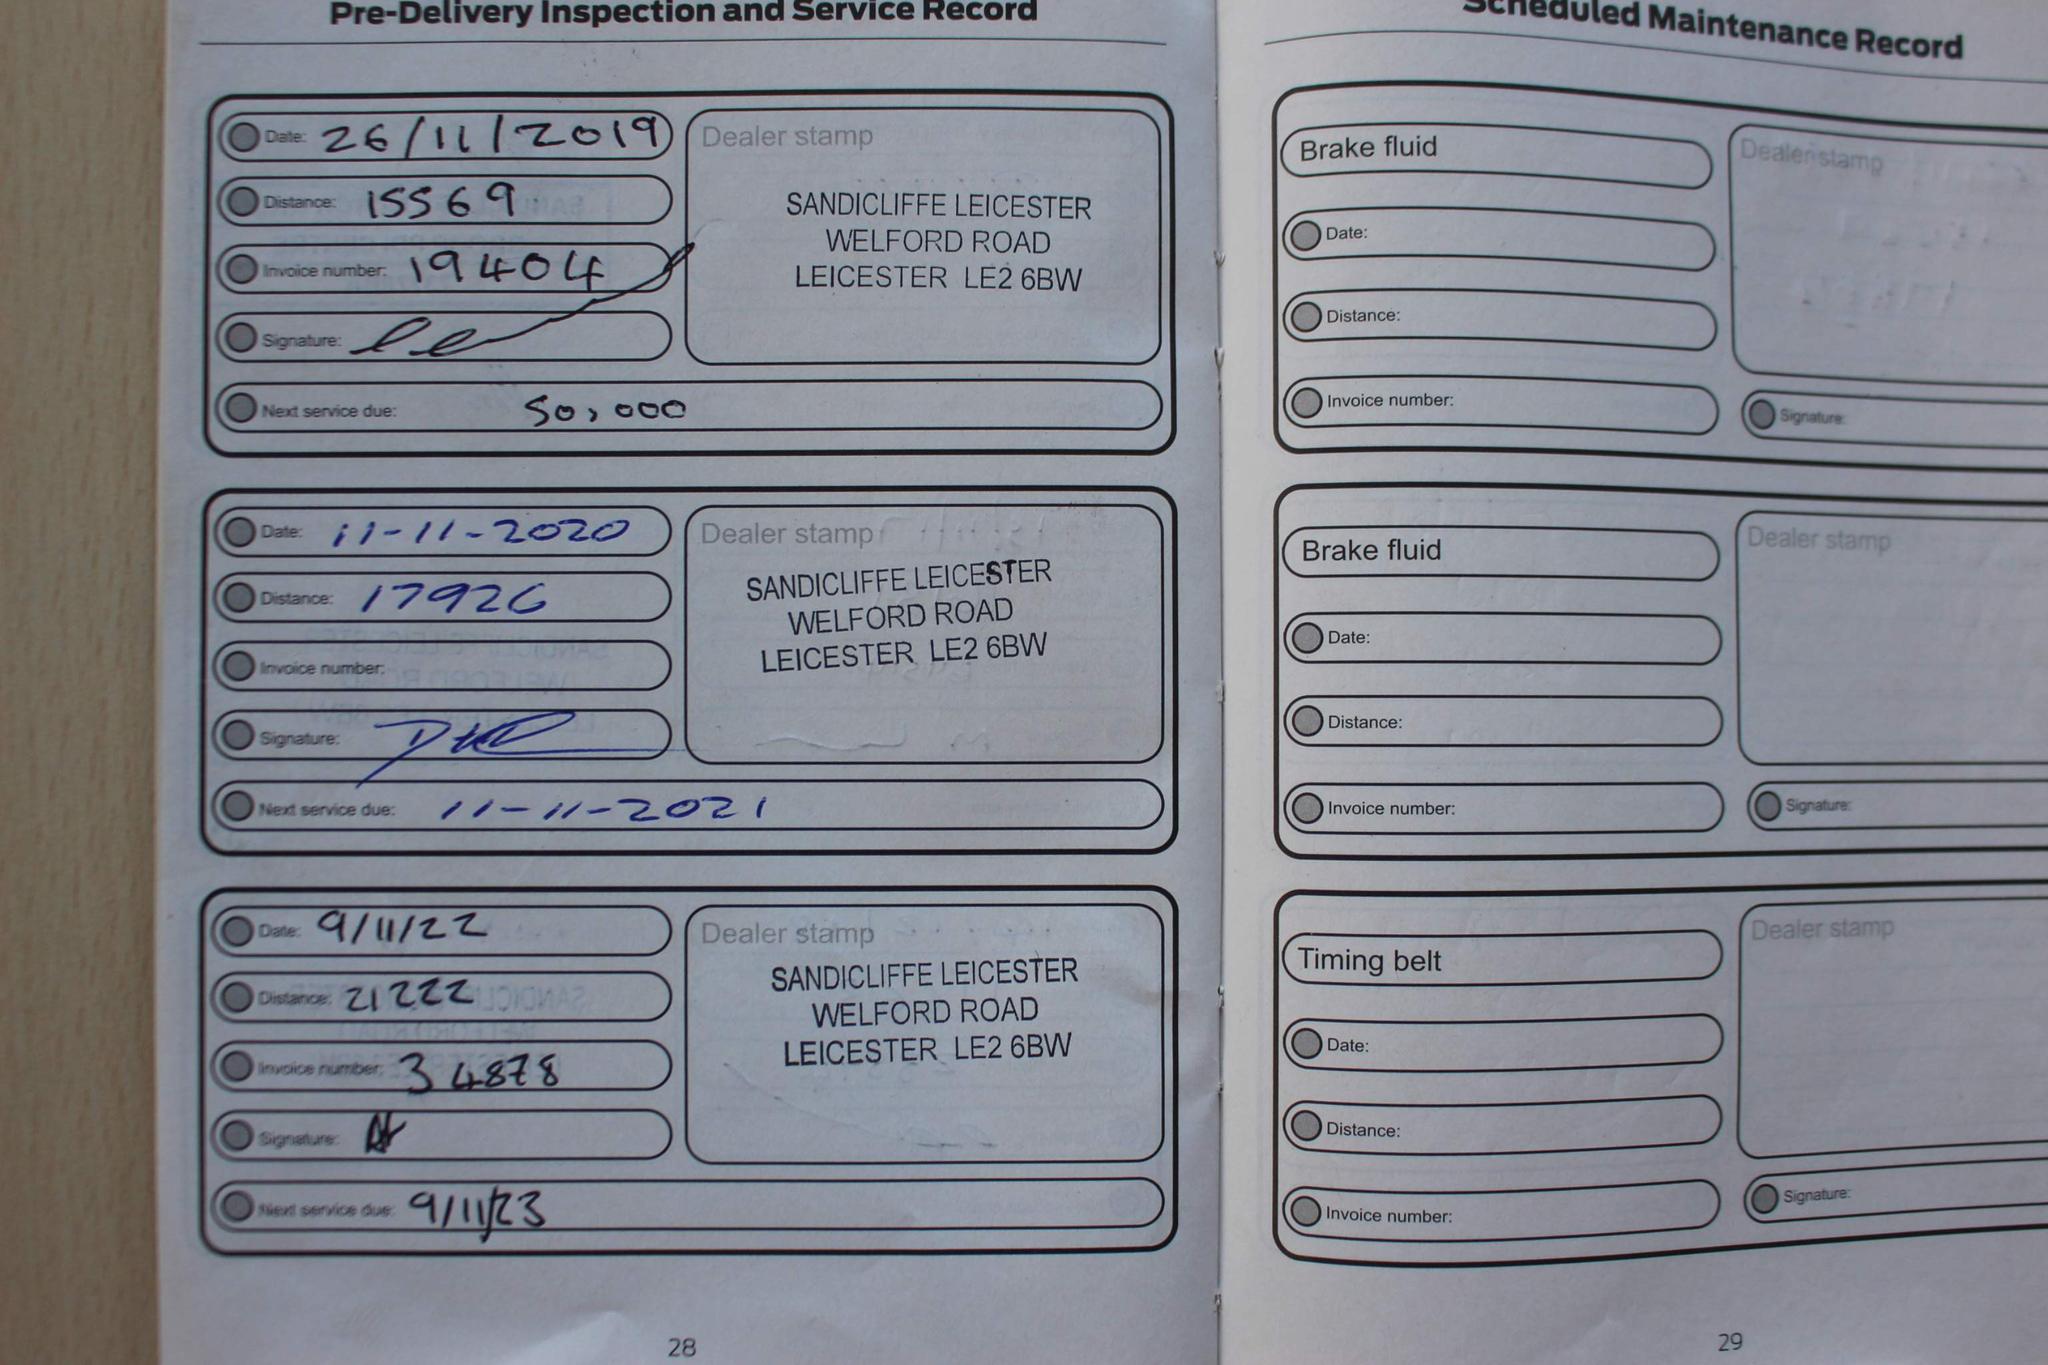 Pre-Delivery Inspection and Service Record
Date: 26/11/2019
Distance: 15569
Invoice number: 19404
Signature:
Next service due: 50,000
Dealer stamp
SANDICLIFFE LEICESTER
WELFORD ROAD
LEICESTER LE2 6BW
Date: 11-11-2020
Distance: 17926
Invoice number:
Signature:
Next service due: 11-11-2021
Dealer stamp
SANDICLIFFE LEICESTER
WELFORD ROAD
LEICESTER LE2 6BW
Date: 9/11/22
Distance: 21222
Invoice number: 34878
Signature:
Next service due: 9/11/23
Dealer stamp
SANDICLIFFE LEICESTER
WELFORD ROAD
LEICESTER LE2 6BW
28
Scheduled Maintenance Record
Brake fluid
Date:
Distance:
Invoice number:
Dealer stamp
Signature:
Brake fluid
Date:
Distance:
Invoice number:
Dealer stamp
Signature:
Timing belt
Date:
Distance:
Invoice number:
Dealer stamp
Signature:
29